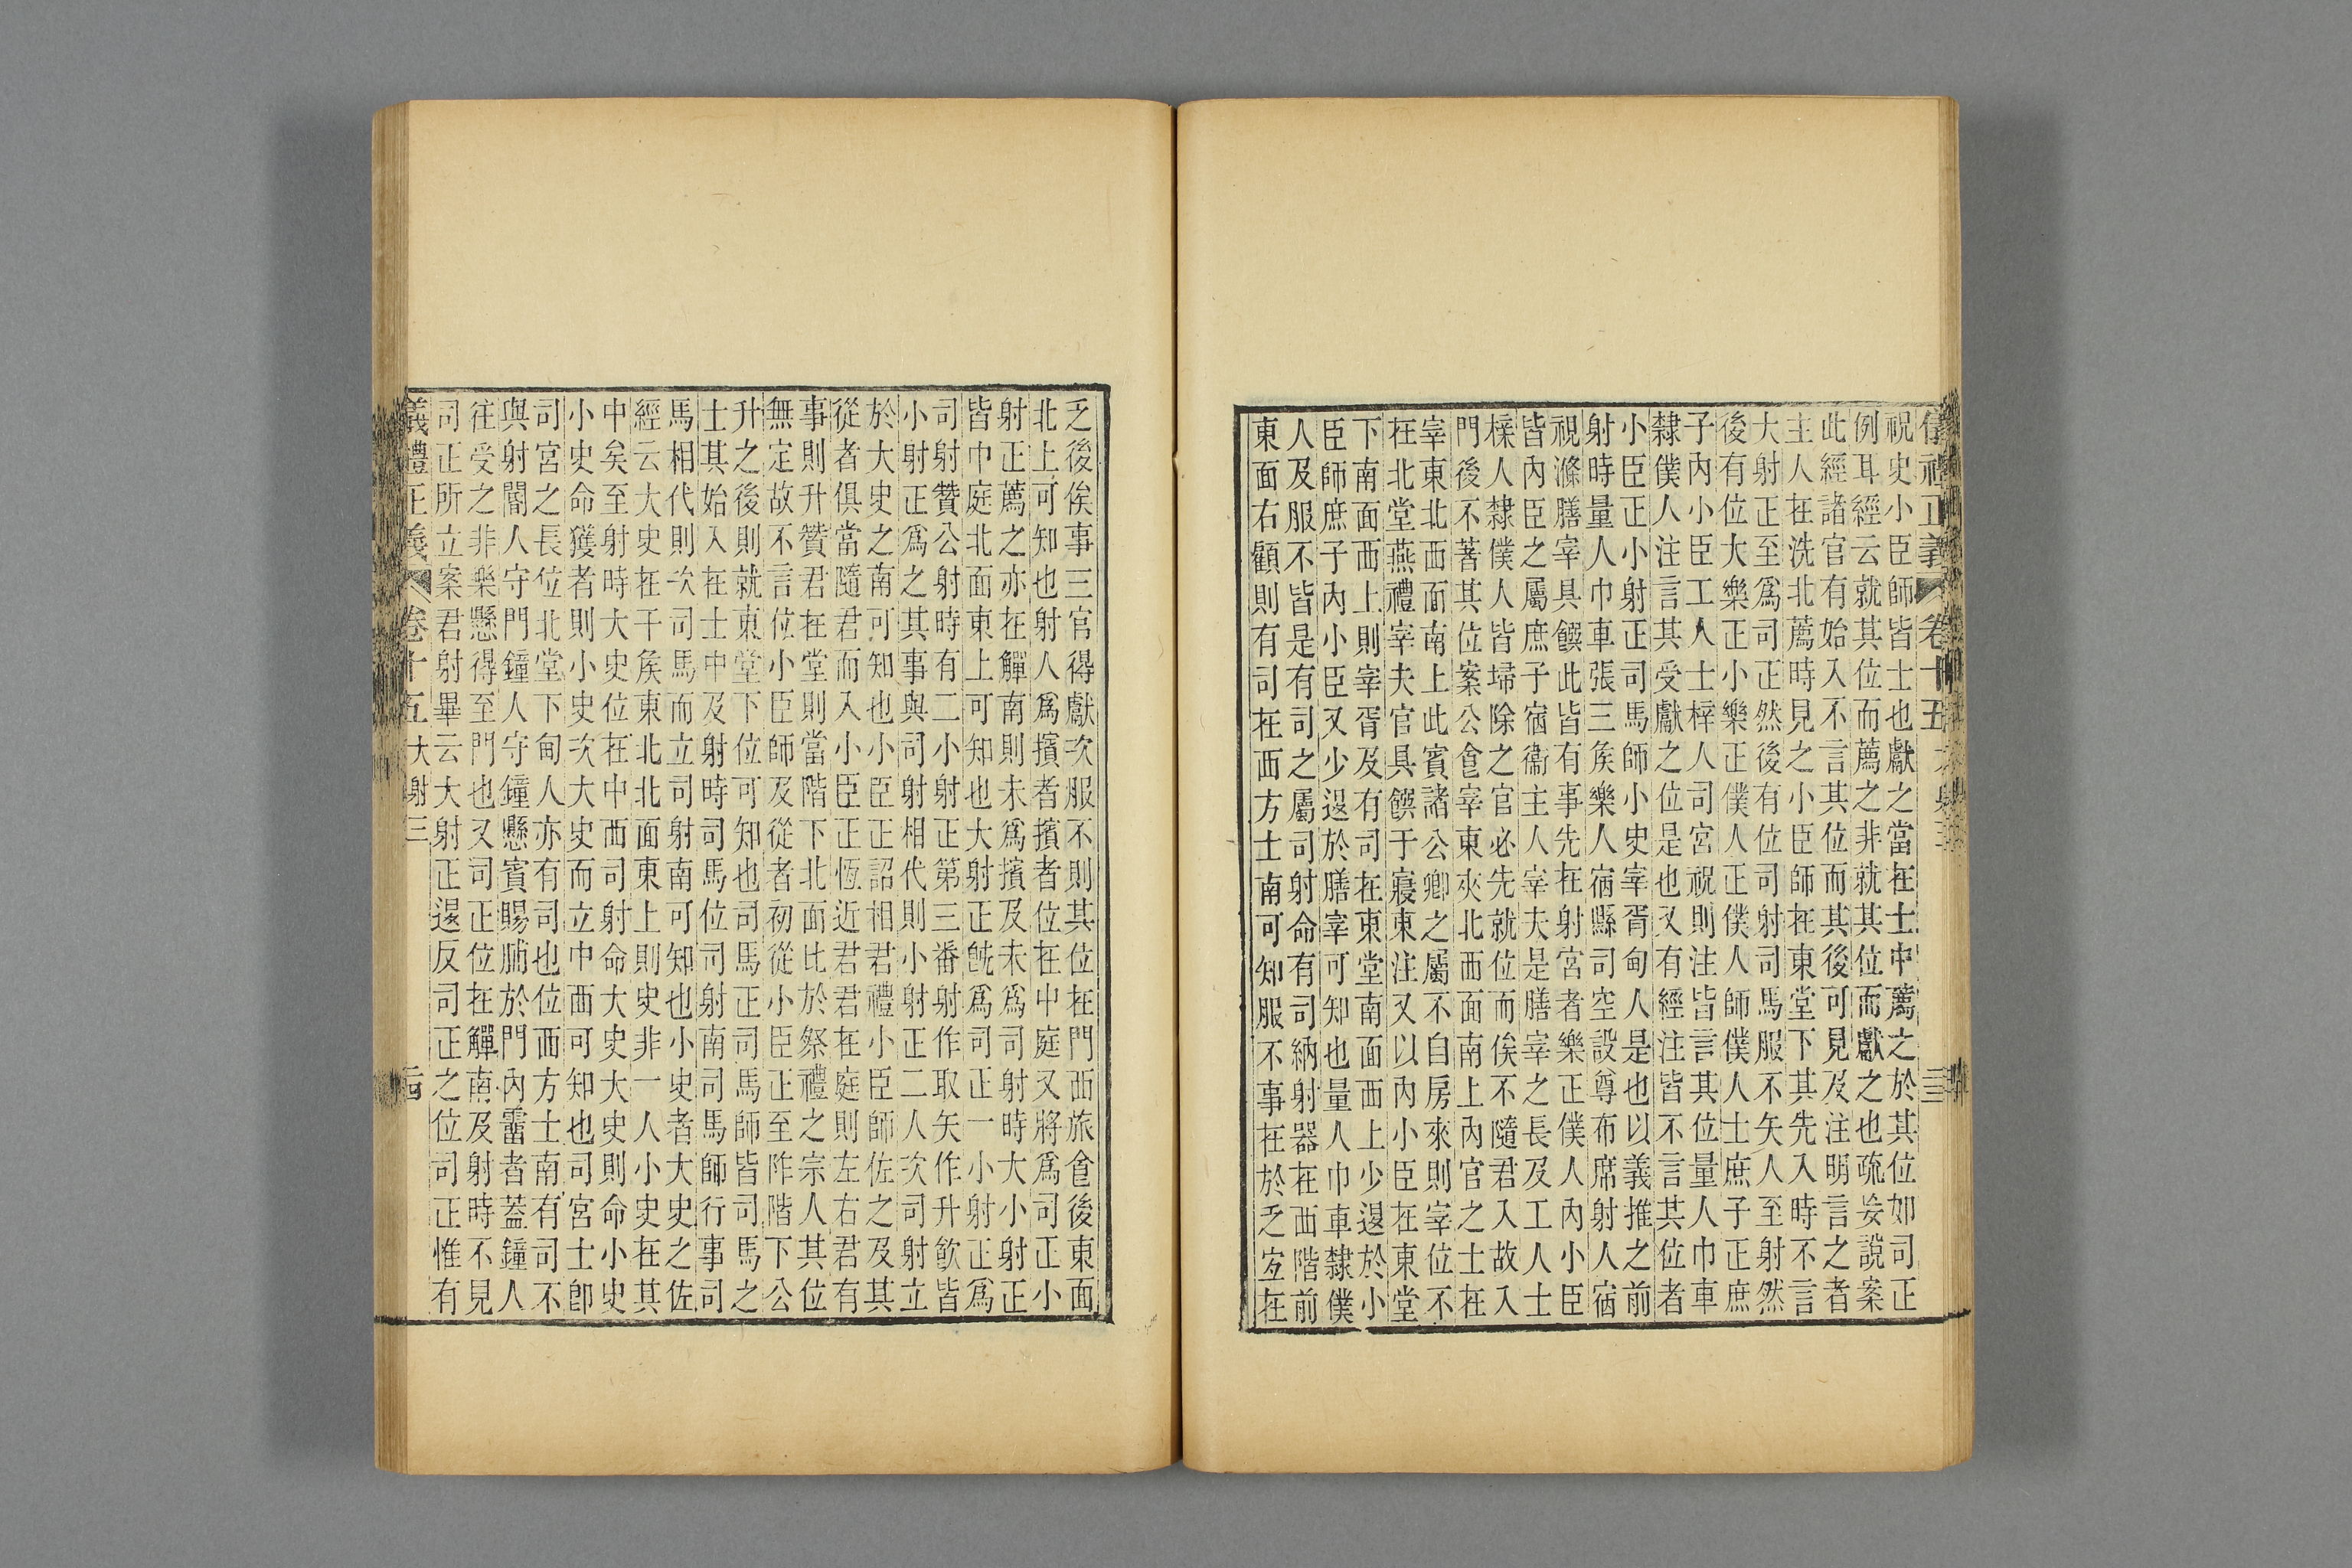 儀禮正義 卷十五 大射三
祝史小臣師皆士也獻之當在士中薦之於其位如司正
例耳經云就其位而薦之非就其位而獻之也疏妄說案
此經諸官有始入不言其位而其後可見及注明言之者
主人在洗北薦時見之小臣師在東堂下其先入時不言
大射正至爲司正然後有位司射司馬服不矢人至射然
後有位大樂正小樂正僕人正僕人師僕人士庶子正庶
子內小臣工人士梓人司宮祝則注皆言其位量人巾車
隸僕人注言其受獻之位是也又有經注皆不言其位者
小臣正小射正司馬師小史宰胥甸人是也以義推之前
射時量人巾車張三矦樂人宿縣司空設尊布席射人宿
視滌膳宰具饌此皆有事先在射宮者樂正僕人內小臣
皆內臣之屬庶子宿衞主人宰夫是膳宰之長及工人士
槺人隸僕人皆埽除之官必先就位而俟不隨君入故入
門後不著其位案公食宰東夾北西面南上內官之士在
宰東北西面南上此賓諸公卿之屬不自房來則宰位不
在北堂燕禮宰夫官具饌于寢東注又以內小臣在東堂
下南面西上則宰胥及有司在東堂南面西上少退於小
臣師庶子內小臣又少退於膳宰可知也量人巾車隸僕
人及服不皆是有司之屬司射命有司納射器在西階前
東面右顧則有司在西方士南可知服不事在於乏宐在
乏後俟事三官得獻次服不則其位在門西旅食後東面
北上可知也射人爲擯者擯者位在中庭又將爲司正小
射正薦之亦在觶南則未爲擯及未爲司射時大小射正
皆中庭北面東上可知也大射正旣爲司正一小射正爲
司射贊公射時有二小射正第三番射作取矢作升飮皆
小射正爲之其事與司射相代則小射正二人次司射立
於大史之南可知也小臣正詔相君禮小臣師佐之及其
從者俱當隨君而入小臣正恆近君君在庭則左右君有
事則升贊君在堂則當階下北面比於祭禮之宗人其位
無定故不言位小臣師及從者初從小臣正至阼階下公
升之後則就東堂下位可知也司馬正司馬師皆司馬之
士其始入在士中及射時司馬位司射南司馬師行事司
馬相代則次司馬而立司射南可知也小史者大史之佐
經云大史在干矦東北北面東上則史非一人小史在其
中矣至射時大史位在中西司射命大史大史則命小史
小史命獲者則小史次大史而立中西可知也司宮士卽
司宮之長位北堂下甸人亦有司也位西方士南有司不
與射閽人守門鐘人守鐘懸賓賜脯於門內霤者蓋鐘人
往受之非樂懸得至門也又司正位在觶南及射時不見
司正所立案君射畢云大射正退反司正之位司正惟有
儀禮正義 卷十五 大射三